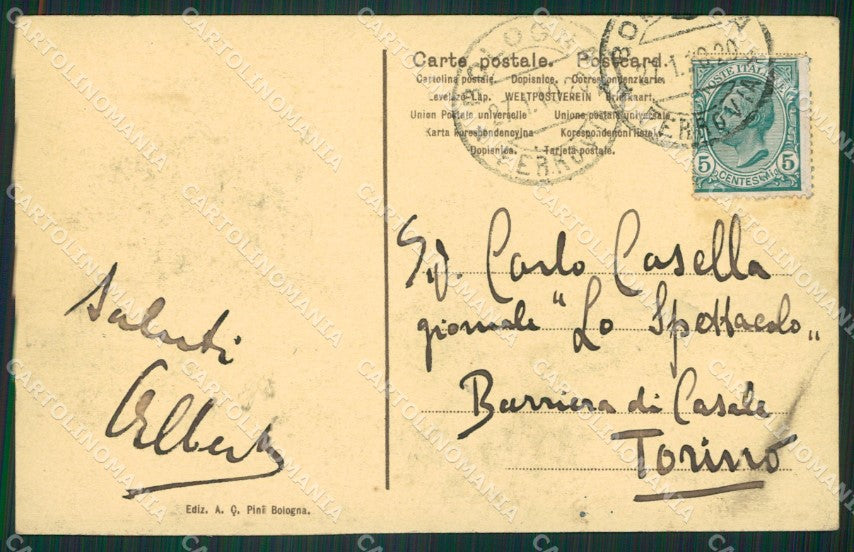 Carte postale. Postcard.
Cartolina postale. Dopisnice. Correspondenzkarte.
Levelező-Lap. WELTPOSTVEREIN Briefkaart.
Union Postale universelle Unione postale universale
Karta korespondencyjna Korespondenční lístek.
Dopisnica. Tarjeta postale.
BOLOGNA
FERROVIA
BOLOGNA
FERROVIA
POSTE ITALIANE
5 5
CENTESIMI
Saluti
Alberto
Sig. Carlo Casella
giornale "Lo Spettacolo"
Barriera di Casale
Torino
Ediz. A. Ç. Pini Bologna.
CARTOLINOMANIA